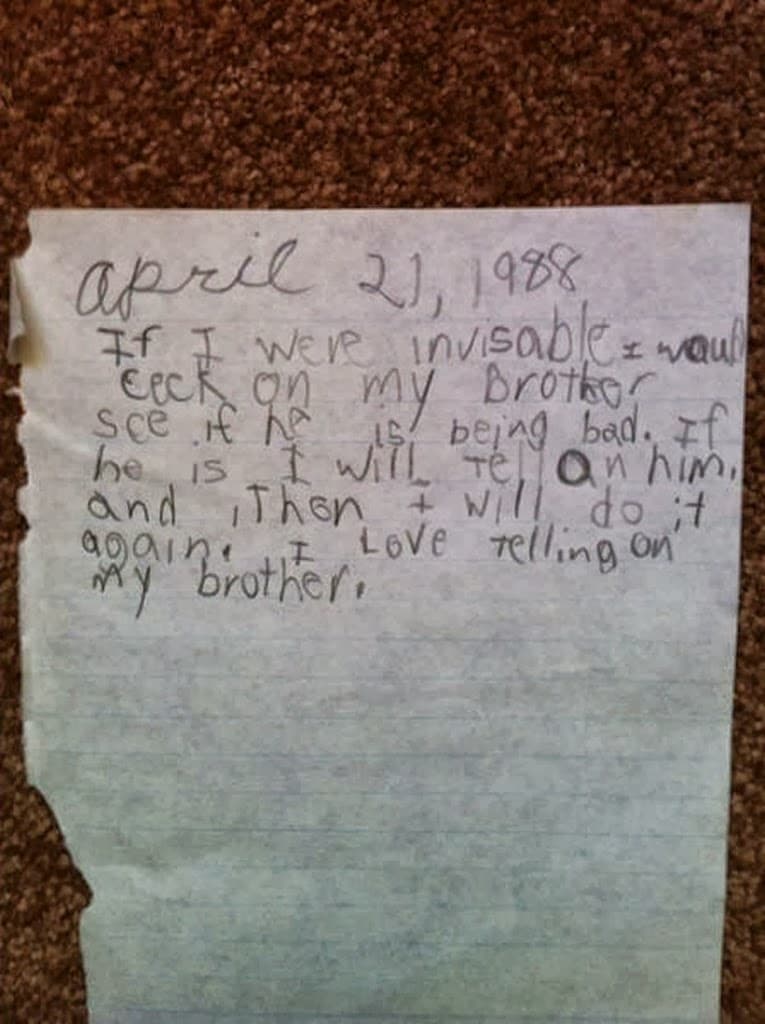 april 21, 1988
If I were invisable I woul
ceck on my Brother
see if he is being bad. If
he is I will tell on him.
and , Then I will do it
again. I Love telling on
my brother.